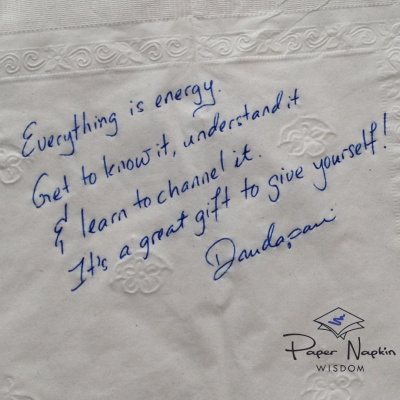 Everything is energy.
Get to know it, understand it
& learn to channel it.
It's a great gift to give yourself!
Dandapani
Paper Napkin
WISDOM